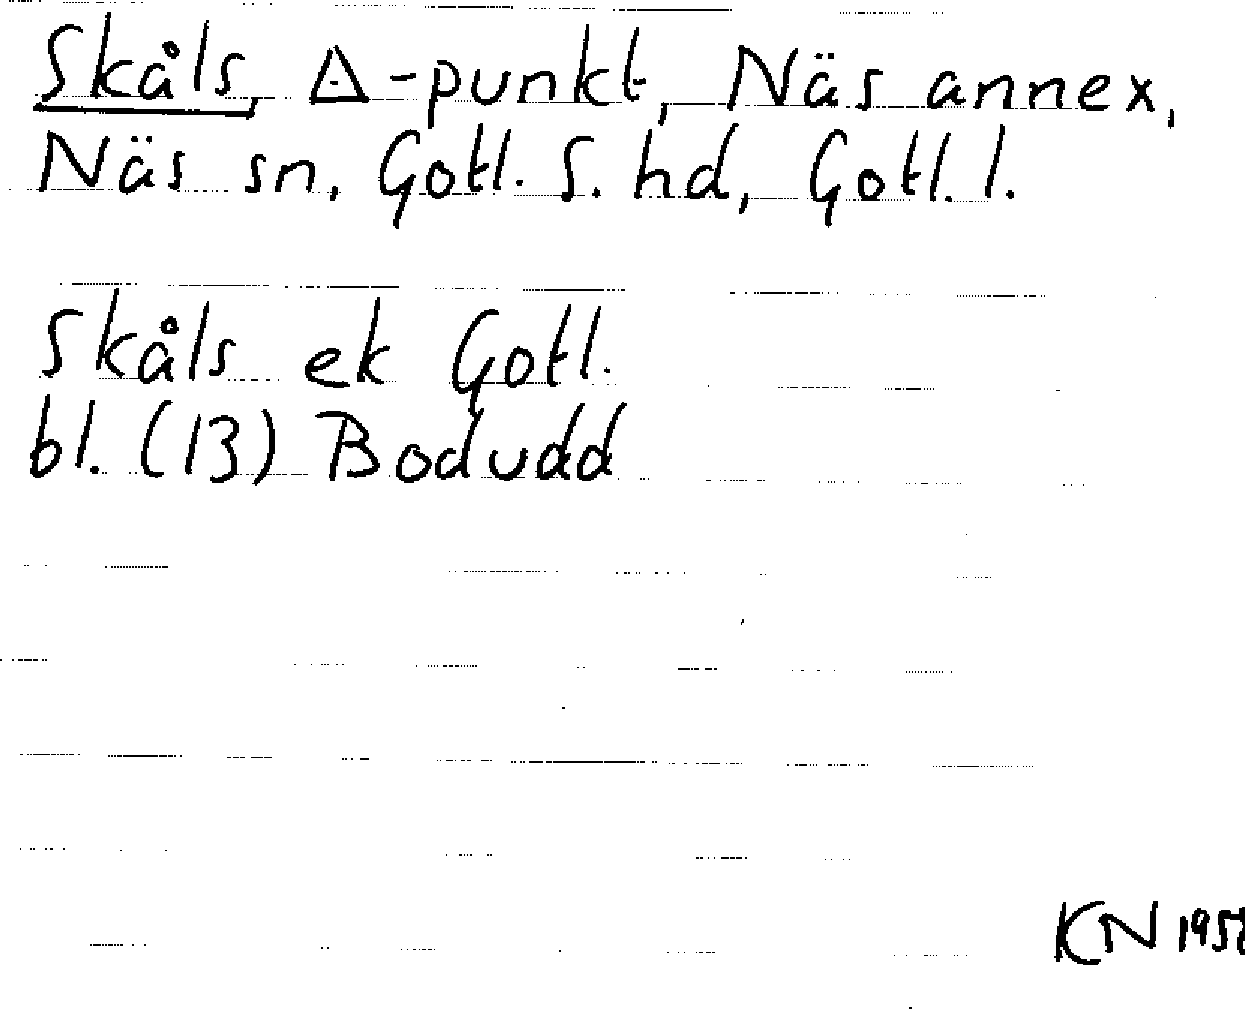 Skåls, Δ-punkt, Näs annex,
Näs sn, Gotl. S. hd, Gotl. l.
Skåls ek Gotl.
bl. (13) Bodudd
KN